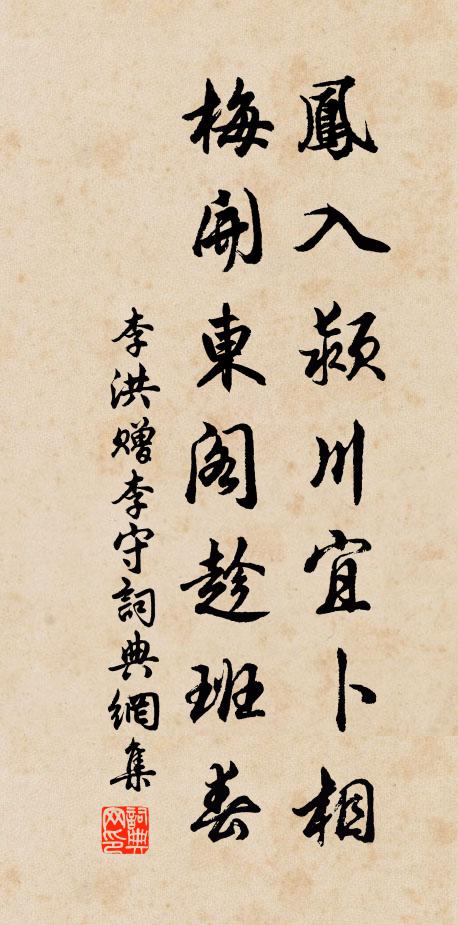 鳳入潁川宜卜相
梅開東閣趁班春
李洪贈李守詞典網集
詞典網印